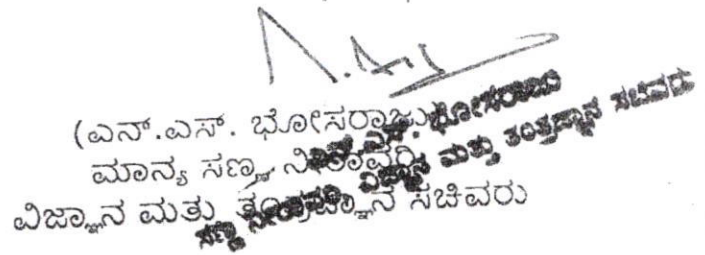 (ಎನ್.ಎಸ್. ಭೋಸರಾಜು)
ಮಾನ್ಯ ಸಣ್ಣ ನೀರಾವರಿ
ವಿಜ್ಞಾನ ಮತ್ತು ತಂತ್ರಜ್ಞಾನ ಸಚಿವರು
ಎನ್.ಎಸ್. ಭೋಸರಾಜು
ಸಣ್ಣ ನೀರಾವರಿ ವಿಜ್ಞಾನ ಮತ್ತು ತಂತ್ರಜ್ಞಾನ ಸಚಿವರು